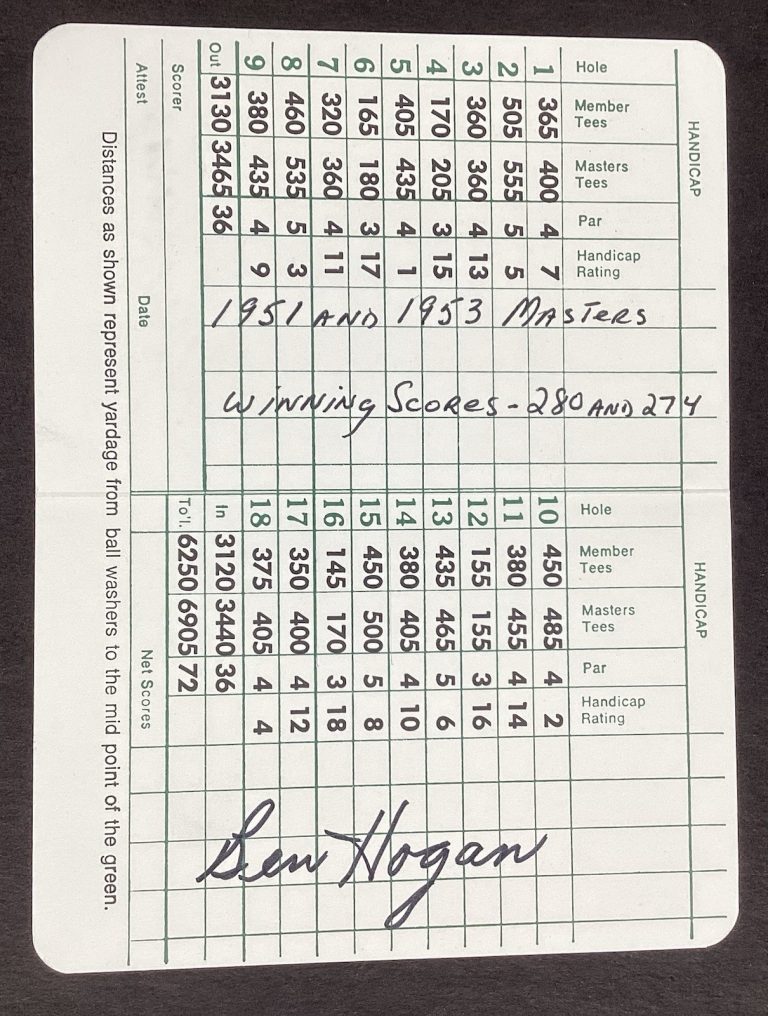 HANDICAP
Hole Member Tees Masters Tees Par Handicap Rating
1 365 400 4 7
2 505 555 5 5
3 360 360 4 13
4 170 205 3 15
5 405 435 4 1
6 165 180 3 17
7 320 360 4 11
8 460 535 5 3
9 380 435 4 9
Out 3130 3465 36
1951 AND 1953 MASTERS
WINNING SCORES - 280 AND 274
HANDICAP
Hole Member Tees Masters Tees Par Handicap Rating
10 450 485 4 2
11 380 455 4 14
12 155 155 3 16
13 435 465 5 6
14 380 405 4 10
15 450 500 5 8
16 145 170 3 18
17 350 400 4 12
18 375 405 4 4
In 3120 3440 36
To'l. 6250 6905 72
Ben Hogan
Scorer
Attest Date Net Scores
Distances as shown represent yardage from ball washers to the mid point of the green.